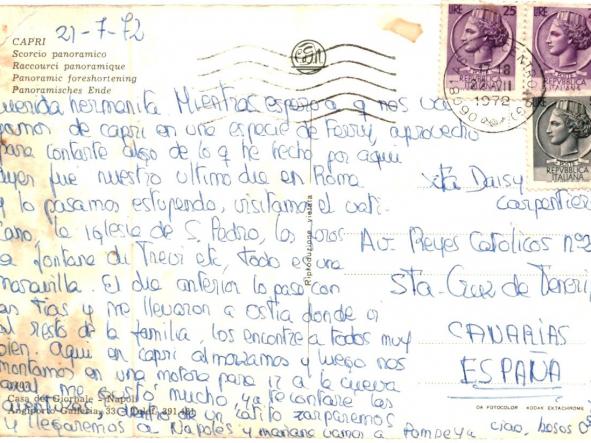 21-7-72
CAPRI
Scorcio panoramico
Raccourci panoramique
Panoramic foreshortening
Panoramisches Ende
LIRE 25
REPVBBLICA
ITALIANA
REPVBBLICA
ITALIANA
1972
uerida hermanita. Mientras espero a q nos va
gamos de capri en una especie de Ferry, aprovecho
para contarte algo de lo q he hecho por aqui
Ayer fue nuestro ultimo dia en Roma
y lo pasamos estupendo, visitamos el vati-
cano, la iglesia de S. Pedro, los foros
a fontana di Trevi etc, todo es una
maravilla. El dia anterior lo pase con
las tias y me llevaron a ostia donde vi
al resto de la familia, los encontre a todos muy
bien. Aqui en capri almorzamos y luego nos
montamos en una motora para ir a la cueva
azul me gustó mucho, ya te contare las
dentro de un ratito zarparemos
y llegaremos a Napoles y mañana vamos a Pompeya ciao, besos
Srta Daisy
Carpentier
Av. Reyes Catolicos nº2
Sta. Cruz de Tenerif
CANARIAS
ESPAÑA
Riproduzione vietata
Casa del Giornale - Napoli
Angiporto Galleria, 33
DA FOTOCOLOR KODAK EKTACHROME